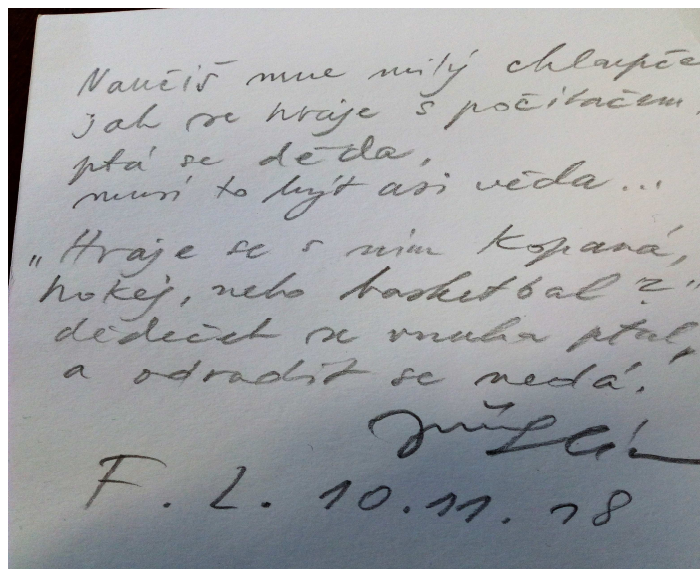 Naučíš mne milý chlapče
jak se hraje s počítačem,
ptá se děda,
musí to být asi věda...
„Hraje se s ním kopaná,
hokej, nebo basketbal?"
dědeček se vnuka ptal,
a odradit se nedá.
F. L. 10.11.18